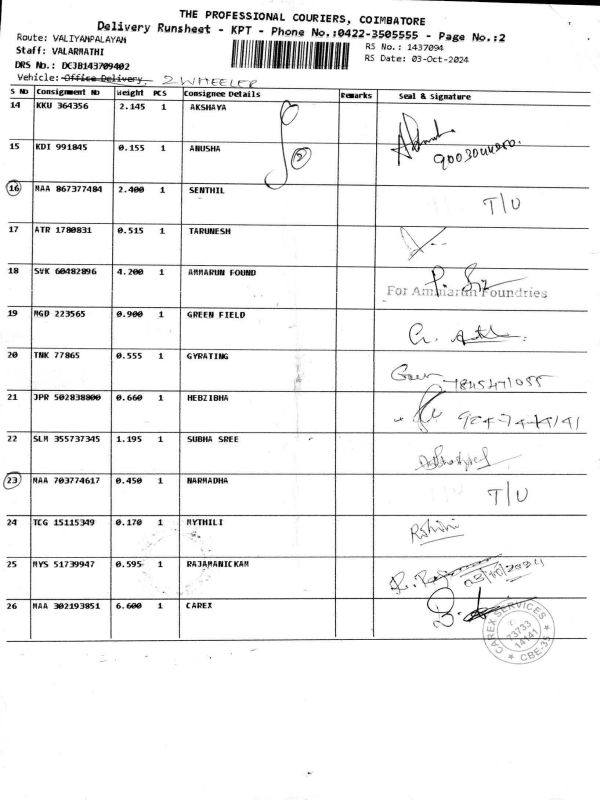 THE PROFESSIONAL COURIERS, COIMBATORE
Delivery Runsheet - KPT - Phone No.:0422-3505555 - Page No.:2
Route: VALIYAMPALAYAM
RS No.: 1437094
Staff: VALARMATHI
RS Date: 03-Oct-2024
DRS No.: DCJB143709402
Vehicle: Office Delivery, 2 WHEELER
S No Consignment No Weight PCS Consignee Details Remarks Seal & Signature
14 KKU 364356 2.145 1 AKSHAYA
15 KDI 991845 0.155 1 ANUSHA
16 MAA 867377484 2.400 1 SENTHIL T/U
17 ATR 1780831 0.515 1 TARUNESH
18 SVK 60482896 4.200 1 AMMARUN FOUND
For Ammarun Foundries
19 MGD 223565 0.900 1 GREEN FIELD
20 TNK 77865 0.555 1 GYRATING
21 JPR 502838800 0.660 1 HEBZIBHA
22 SLM 355737345 1.195 1 SUBHA SREE
23 MAA 703774617 0.450 1 NARMADHA T/U
24 TCG 15115349 0.170 1 MYTHILI
25 MYS 51739947 0.595 1 RAJAMANICKAM
26 MAA 302193851 6.600 1 CAREX
CAREX SERVICES
73733
14141
CBE-35